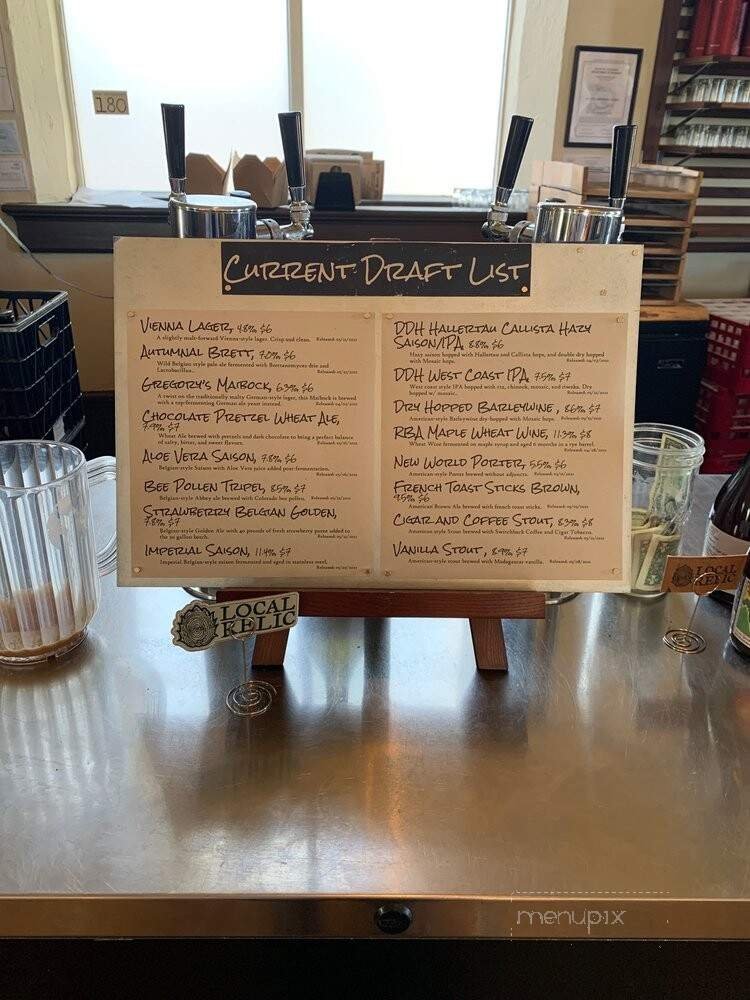 180
CURRENT DRAFT LIST
VIENNA LAGER, 4.8% $6
A slightly malt-forward Vienna-style lager. Crisp and clean.
AUTUMNAL BRETT, 7.0% $6
Wild Belgian style pale ale fermented with Brettanomyces drie and
Lactobacillus.
GREGORY'S MAIBOCK, 6.3% $6
A twist on the traditionally malty German-style lager, this Maibock is brewed
with a top-fermenting German ale yeast instead.
CHOCOLATE PRETZEL WHEAT ALE,
7.9% $7
Wheat Ale brewed with pretzels and dark chocolate to bring a perfect balance
of salty, bitter, and sweet flavors.
ALOE VERA SAISON, 7.8% $6
Belgian-style Saison with Aloe Vera juice added post-fermentation.
BEE POLLEN TRIPEL, 8.5% $7
Belgian-style Abbey ale brewed with Colorado bee pollen.
STRAWBERRY BELGIAN GOLDEN,
7.8% $7
Belgian-style Golden Ale with 40 pounds of fresh strawberry puree added to
the 20 gallon batch.
IMPERIAL SAISON, 11.4% $7
Imperial Belgian-style saison fermented and aged in stainless steel.
DDH HALLERTAU CALLISTA HAZY
SAISON/IPA, 8.8% $6
Hazy saison hopped with Hallertau and Callista hops, and double dry hopped
with Mosaic hops.
DDH WEST COAST IPA, 7.5% $7
West coast style IPA hopped with ctz, chinook, mosaic, and riwaka. Dry
hopped w/ mosaic.
DRY HOPPED BARLEYWINE, 8.6% $7
American-style Barleywine dry-hopped with Mosaic hops.
RBA MAPLE WHEAT WINE, 11.3% $8
Wheat Wine fermented on maple syrup and aged 6 months in a rye barrel.
NEW WORLD PORTER, 5.5% $6
American-style Porter brewed without adjuncts.
FRENCH TOAST STICKS BROWN,
9.5% $6
American Brown Ale brewed with french toast sticks.
CIGAR AND COFFEE STOUT, 8.3% $8
American style Stout brewed with Switchback Coffee and Cigar Tobacco.
VANILLA STOUT, 8.9% $7
American-style stout brewed with Madagascar vanilla.
LOCAL
RELIC
LOCAL
RELIC
menupix